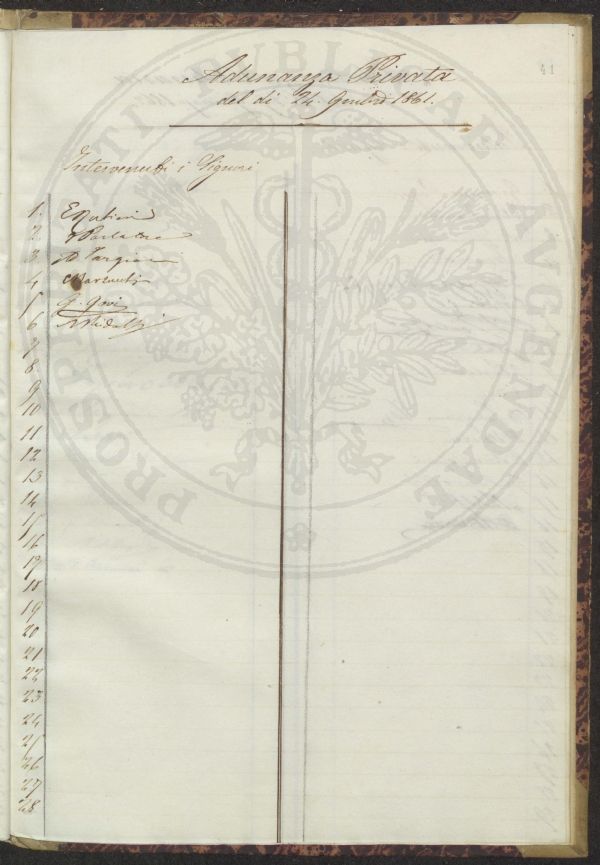 41
Adunanza Privata
del dì 24. Genbro 1861.
Intervenuti i Signori
1.
2
3. A Targioni
4
5 G. Govi
6 A Ridolfi
7
8
9
10
11
12
13
14
15
16
17
18
19
20
21
22
23
24
25
26
27
28
PROSPERITATI PUBLICAE AUGENDAE